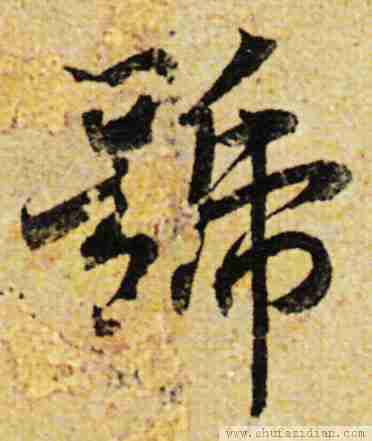 號
www.shufazidian.com